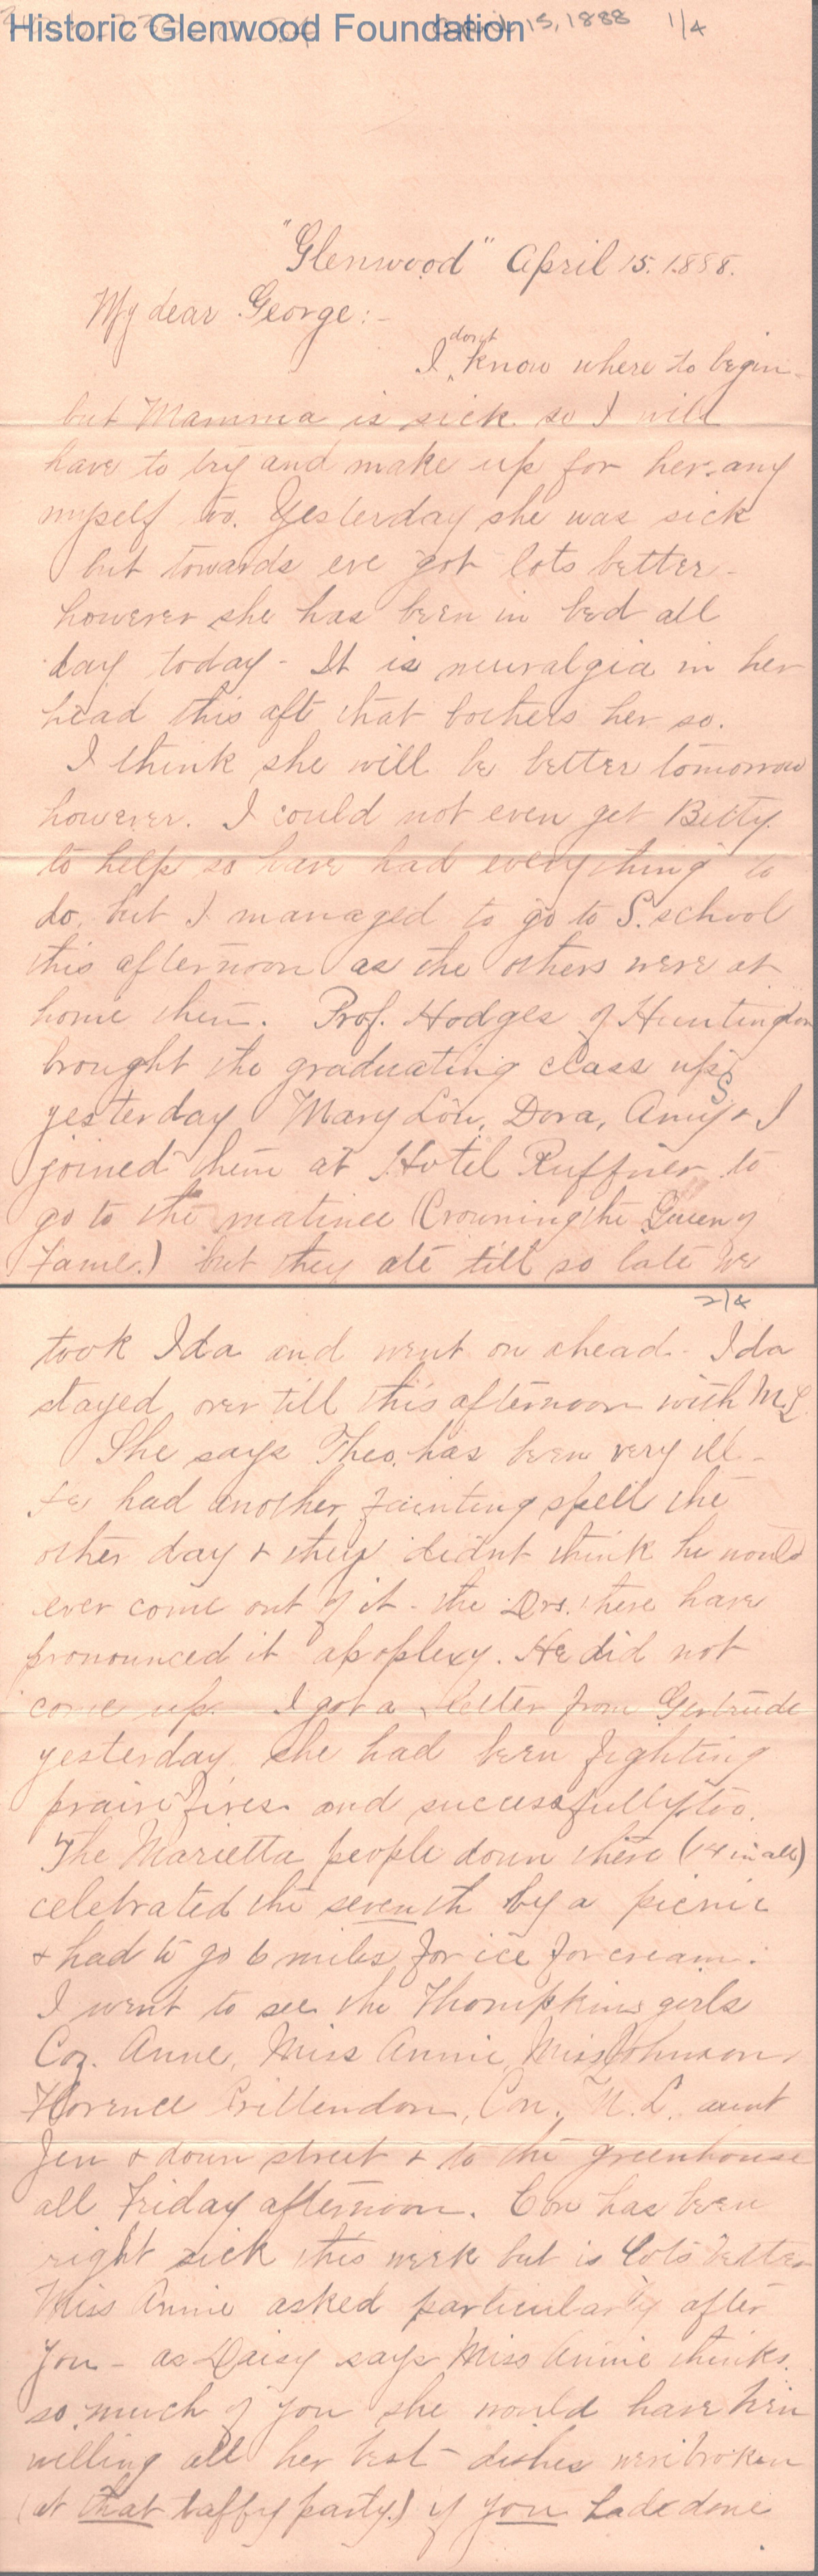 Historic Glenwood Foundation
15, 1888 1/4
"Glenwood" April 15. 1888.
My dear George:-
dont
I know where to begin-
but Mamma is sick so I will
have to try and make up for her any
myself too. Yesterday she was sick
but towards eve got lots better-
however she has been in bed all
day today - It is neuralgia in her
head this aft that bothers her so.
I think she will be better tomorrow
however. I could not even get Betty
to help so have had everything to
do, but I managed to go to S. school
this afternoon as the others were at
home then. Prof. Hodges of Huntingdon
brought the graduating class up
yesterday Mary Lou, Dora, Amy S & I
joined them at Hotel Ruffner to
go to the matinee (Crowning the Queen of
Fame.) but they ate till so late we
2/4
took Ida and went on ahead - Ida
stayed over till this afternoon with M.L.
She says Theo. has been very ill -
He had another fainting spell the
other day & they didnt think he would
ever come out of it - the Drs. there have
pronounced it apoplexy. He did not
come up. I got a letter from Gertrude
yesterday she had been fighting
prairie fires and successfully too.
The Marietta people down there (14 in all)
celebrated the seventh by a picnic
& had to go 6 miles for ice for cream.
I went to see the Thompkins girls
Coz. Anne, Miss Annie, Miss Johnson,
Florence Crittendon, Con, M.L. aunt
Jen & down street & to the greenhouse
all Friday afternoon. Con has been
right sick this week but is lots better
Miss Annie asked particularly after
you - as Daisy says Miss Annie thinks
so much of you she would have been
willing all her best dishes were broken
(at that taffy party.) if you had done